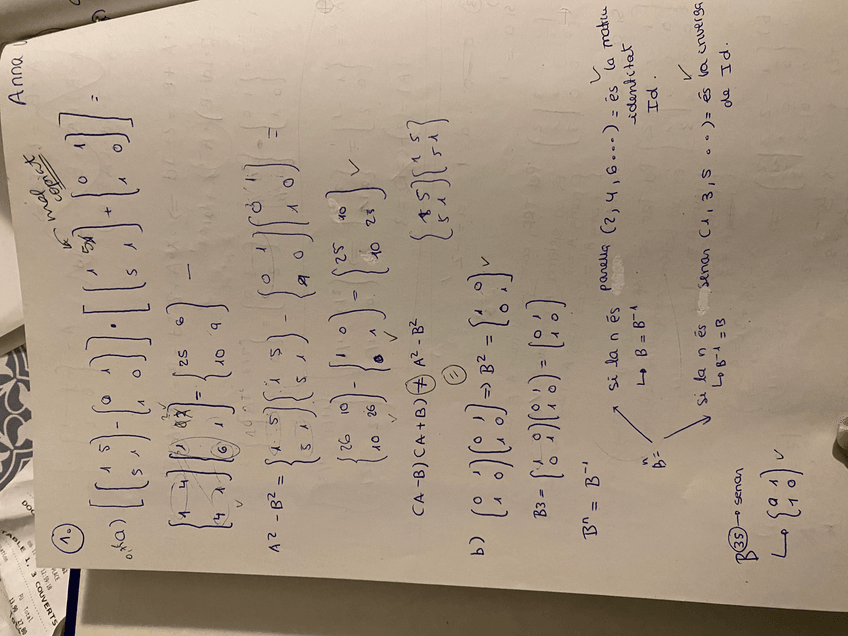 Anna
mal copiat
1.
a) [(1 5 / 5 1) - (0 1 / 1 0)] · [(1 5 / 5 1) + (0 1 / 1 0)] =
(1 4 / 4 1)(1 6 / 6 1) = (25 6 / 10 9) —
A² - B² = (1 5 / 5 1)(1 5 / 5 1) - (0 1 / 1 0)(0 1 / 1 0) =
(26 10 / 10 26) - (1 0 / 0 1) = (25 10 / 10 25) ✓
(A-B)(A+B) ≠ A² - B² (1 5 / 5 1)(1 5 / 5 1)
=
b) (0 1 / 1 0)(0 1 / 1 0) => B² = (1 0 / 0 1) ✓
B3 = (1 0 / 0 1)(0 1 / 1 0) = (0 1 / 1 0)
Bⁿ = B⁻¹
si la n és parella (2, 4, 6...) = és la matriu
identitat
Id.
↳ B = B⁻¹
Bⁿ=
si la n és senar (1, 3, 5...) = és la inversa
de Id.
↳ B⁻¹ = B
B35 → senar
↳ (0 1 / 1 0) ✓
TABLE 1, 3 COUVERTS